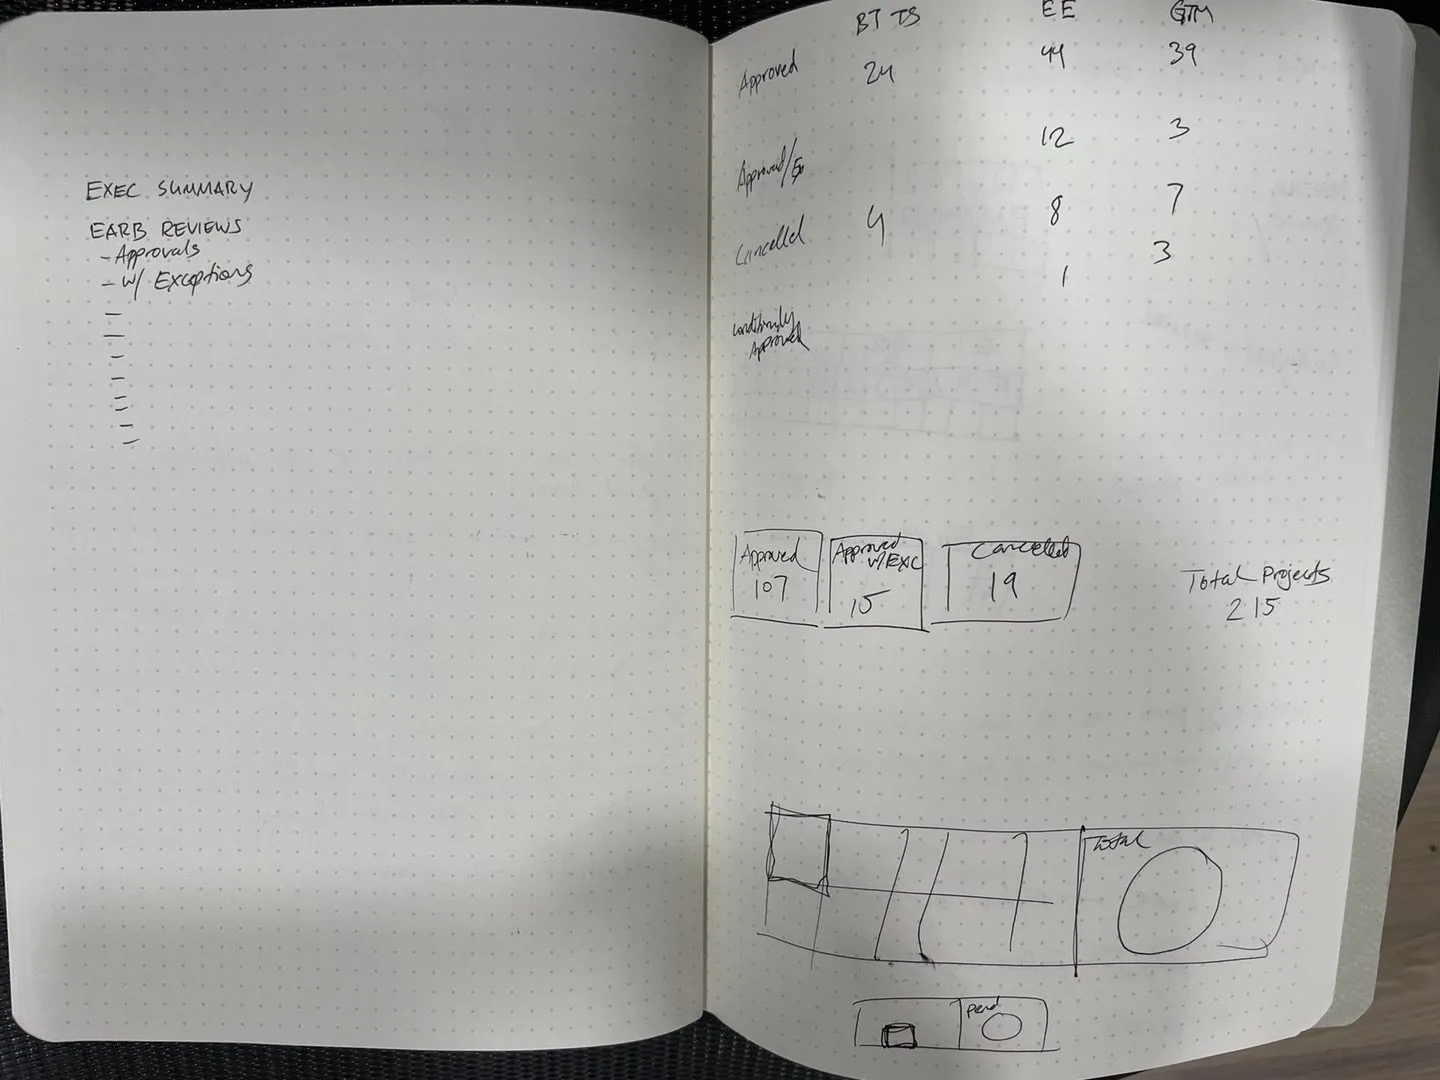 EXEC SUMMARY
EARB REVIEWS
- Approvals
- w/ Exceptions
-
-
-
-
-
-
BT TS EE GTM
Approved 24 44 39
Approved/Ex 12 3
Cancelled 4 8 7
1 3
Conditionally
Approved
Approved
107
Approved
w/EXC
15
Cancelled
19
Total Projects
215
Total
pend